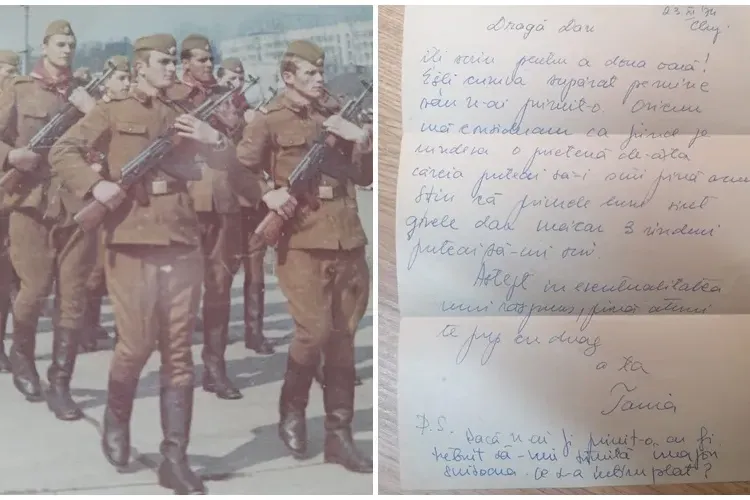 23 XI '74
Cluj
Dragă Dan
îți scriu pentru a doua oară!
Ești cumva supărat pe mine
sau n-ai primit-o. Oricum
mă consideram ca fiind pe
undeva o prietenă de-asta
căreia puteai să-i scrii până acum
Știu că primele luni sunt
grele dar măcar 3 rânduri
puteai să-mi scrii.
Aștept în eventualitatea
unui răspuns, până atunci
te pup cu drag
a ta
Tania
P.S. Dacă n-ai fi primit-o ar fi
trebuit să-mi
scrisoarea. Ce s-a întîmplat?